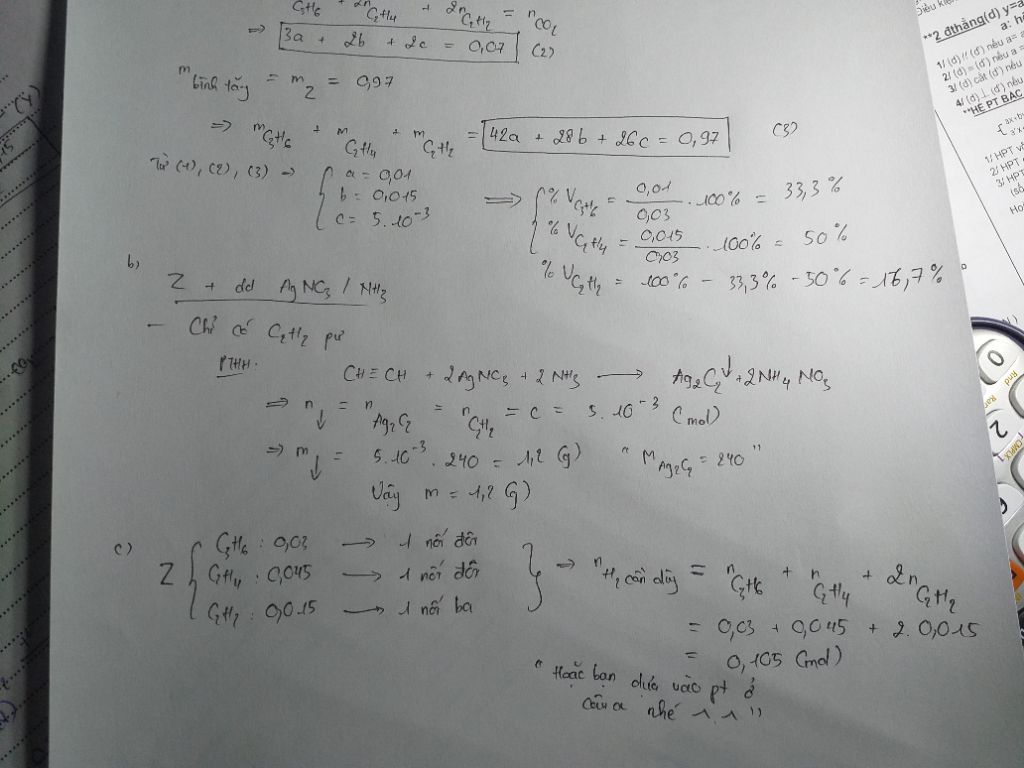 C₃H₆ + 2n C₂H₄ + 2n C₂H₂ = n CO₂
⇒ 3a + 2b + 2c = 0,07 (2)
m bình tăng = m Z = 0,97
⇒ m C₃H₆ + m C₂H₄ + m C₂H₂ = 42a + 28b + 26c = 0,97 (3)
Từ (1), (2), (3) ⇒ { a = 0,01
b = 0,015
c = 5.10⁻³
⇒ { % V C₃H₆ = 0,01/0,03 . 100% = 33,3%
% V C₂H₄ = 0,015/0,03 . 100% = 50%
% V C₂H₂ = 100% - 33,3% - 50% = 16,7%
b)
Z + dd AgNO₃ / NH₃
- Chỉ có C₂H₂ pư
PTHH:
CH≡CH + 2AgNO₃ + 2NH₃ → Ag₂C₂↓ + 2NH₄NO₃
⇒ n↓ = n Ag₂C₂ = n C₂H₂ = c = 5.10⁻³ (mol)
⇒ m↓ = 5.10⁻³ . 240 = 1,2 (g) " M Ag₂C₂ = 240 "
Vậy m = 1,2 (g)
c)
Z { C₃H₆ : 0,03 → 1 nối đôi
C₂H₄ : 0,045 → 1 nối đôi
C₂H₂ : 0,015 → 1 nối ba
} ⇒ n H₂ cần dùng = n C₃H₆ + n C₂H₄ + 2n C₂H₂
= 0,03 + 0,045 + 2. 0,015
= 0,105 (mol)
" Hoặc bạn dựa vào pt ở
câu a nhé ^.^ "
Điều kiện
**2 đthẳng(d) y=a
1/ (d) // (d') nếu a=
2/ (d) ≡ (d') nếu a =
3/ (d) cắt (d') nếu
4/ (d) ⊥ (d') nếu
**HỆ PT BẬC
1/ HPT
2/ HPT
3/ HPT
0
Rnd
Ran#
2